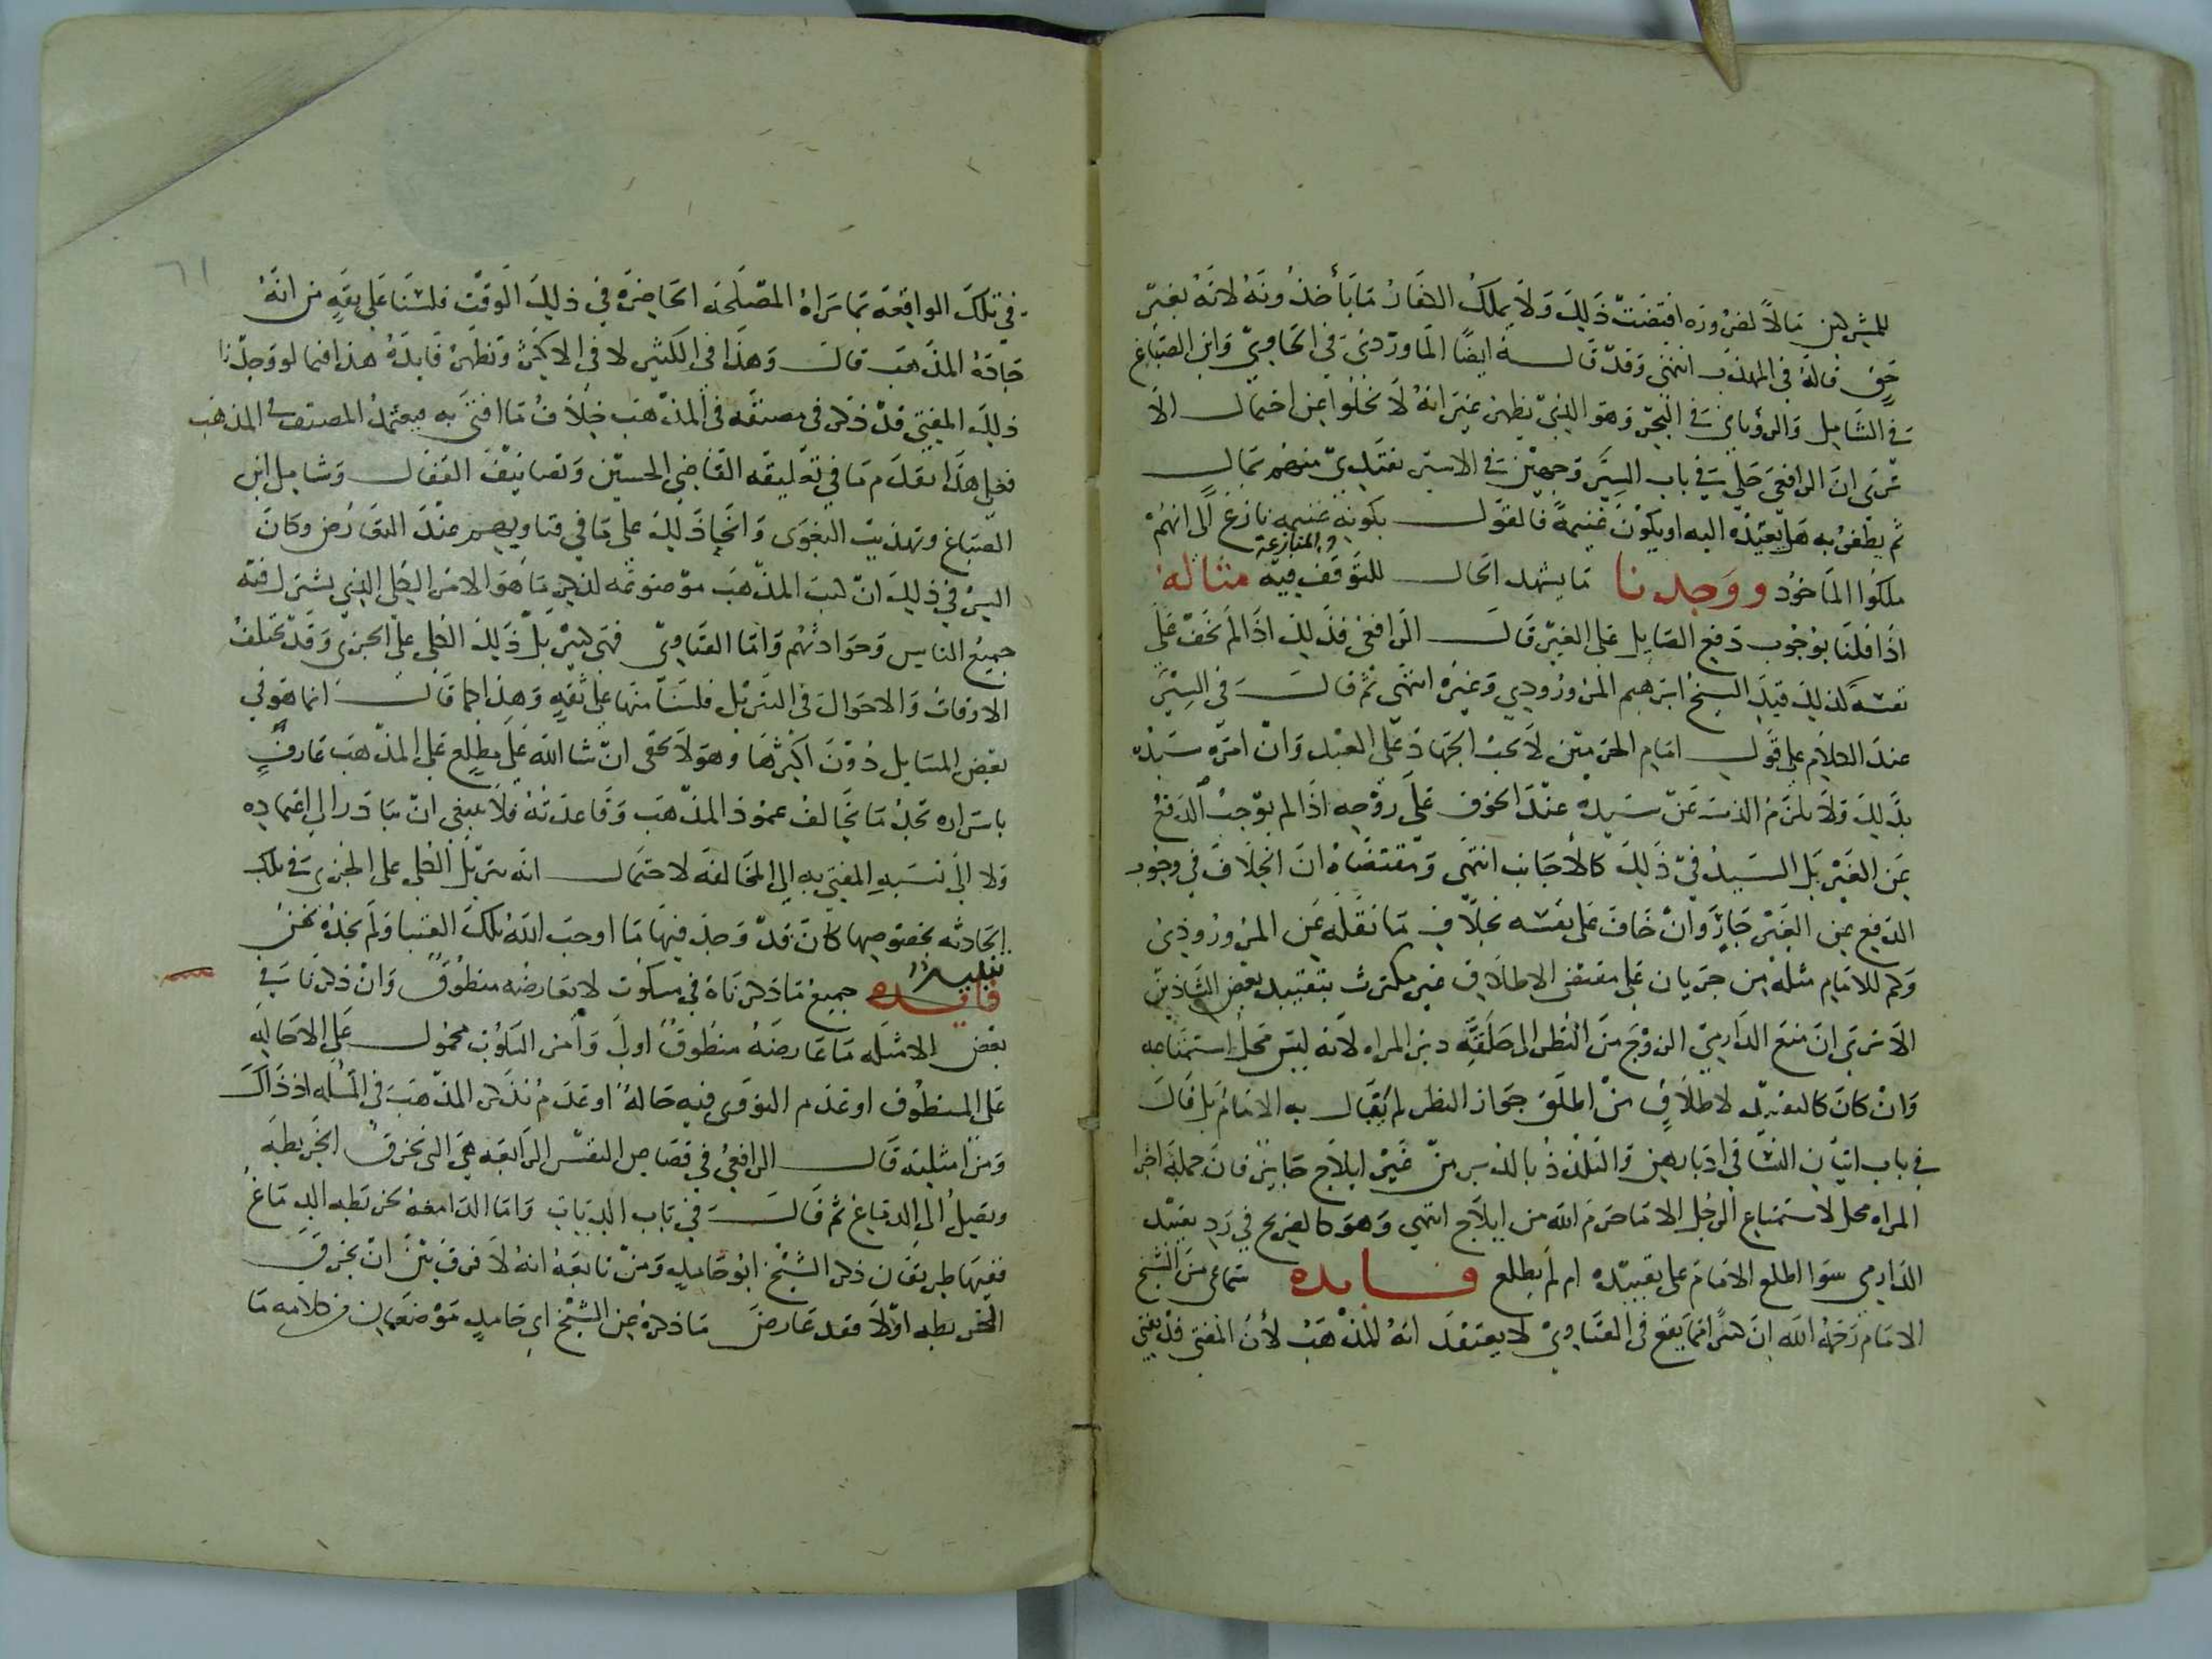 للمشركين مالا لضروره اقتضت ذلك ولا يملك الكفار ما يأخذونه لانه بغير
حق قاله في المهذب انتهى وقد قاله ايضا الماوردي في الحاوي وابن الصباغ
في الشامل والروياني في البحر وهو الذي يظهر غير انه لا يخلوا عن احتمال الا
ترى ان الرافعي حكى في باب السير وجهين في الاسير يفتدى منهم بمال
ثم يظفر به هل يعيده اليه او يكون غنيمة فالقول بكونه غنيمه نازع الى انهم
ملكوا المأخوذ ووجدنا ما يشهد الحال للتوقف فيه والمنازعة مثاله
اذا قلنا بوجوب دفع الصايل على الغير قال الرافعي فذلك اذا لم يخف على
نفسه كذلك قيد الشيخ ابرهيم المروروذي وغيره انتهى ثم قال في السير
عند الكلام على قول امام الحرمين لا يجب الجهاد على العبد وان امره سيده
بذلك ولا يلزم الذب عن سيده عند الخوف على روحه اذا لم يوجب الدفع
عن الغير بل السيد في ذلك كالاجانب انتهى ومقتضاه ان الخلاف في وجوب
الدفع عن الغير جار وان خاف على نفسه بخلاف ما نقله عن المروروذي
وكم للامام مثله من جريان على مقتضى الاطلاق غير مكترث بتقييد بعض الشاذين
الا ترى ان منع الدارمي الزوج من النظر الى حلقة دبر المراه لانه ليس محل استمتاعه
وان كان كالتقييد لاطلاق من اطلق جواز النظر لم يبال به الامام بل قال
في باب اتيان النسا في ادبارهن والتلذذ بالدبر من غير ايلاج جايز فان جملة اجزا
المراه محل لاستمتاع الرجل الا ما حرم الله من ايلاج انتهى وهو كالصريح في رد تقييد
الدارمي سوا اطلع الامام على تقييده ام لم يطلع فايده سماعي من الشيخ
الامام رحمه الله ان كثيرا مما يقع في الفتاوي لا يعتقد انه المذهب لأن المفتي قد يفتي
في تلك الواقعة بما يراه المصلحه الحاضره في ذلك الوقت فلسنا على ثقه من انه
جادة المذهب قال وهذا في الكثير لا في الاكثر وتظهر فايدة هذا فيما لو وجدنا
ذلك المفتي قد ذكر في مصنفه في المذهب خلاف ما افتى به فيعتمد المصنف في المذهب
فعلى هذا يقدم ما في تعليقه القاضي الحسين وتصانيف القفال وشامل ابن
الصباغ وتهذيب البغوى وانحا ذلك على ما في فتاويهم عند التعارض وكان
السر في ذلك ان كتب المذهب موضوعه لذكر ما هو الامر الكلي الذي يشترك فيه
جميع الناس وحوادثهم واما الفتاوي فهي تنزيل ذلك الكلي على الجزي وقد تختلف
الاوقات والاحوال في التنزيل فلسنا منها على ثقه وهذا كما قال انما هو في
بعض المسايل دون اكثرها وهو لا يخفى ان شا الله على مطلع على المذهب عارف
باسراره تجد ما يخالف عمود المذهب وقاعدته فلا ينبغي ان يبادر الى اعتماده
ولا الى نسبه المفتي به الى المخالفة لاحتمال انه تنزيل الكلي على الجزي في تلك
الحادثه بخصوصها كان قد وجد فيها ما اوجب الله تلك الفتيا ولم نجده نحن
فايده تنبيه جميع ما ذكرناه في سكوت لا يعارضه منطوق وان ذكرنا في
بعض الامثله ما عارضه منطوق اول وامر التاوب محمول على الاحاله
على المنطوق او عدم القوى فيه حاله او عدم تذكر المذهب في المسله اذ ذاك
ومن امثلته قال الرافعي في قصاص النفس الرابعه هي التي تخرق الخريطه
وتصل الى الدماغ ثم قال في باب الديات واما الدامغه بخريطه الدماغ
ففيها طريقان ذكر الشيخ ابو حامد ومن تابعه انه لا فرق بين ان يخرق
الخريطه اولا فقد عارض ما ذكره عن الشيخ ابي حامد موضعان من كلامه ما
٦١